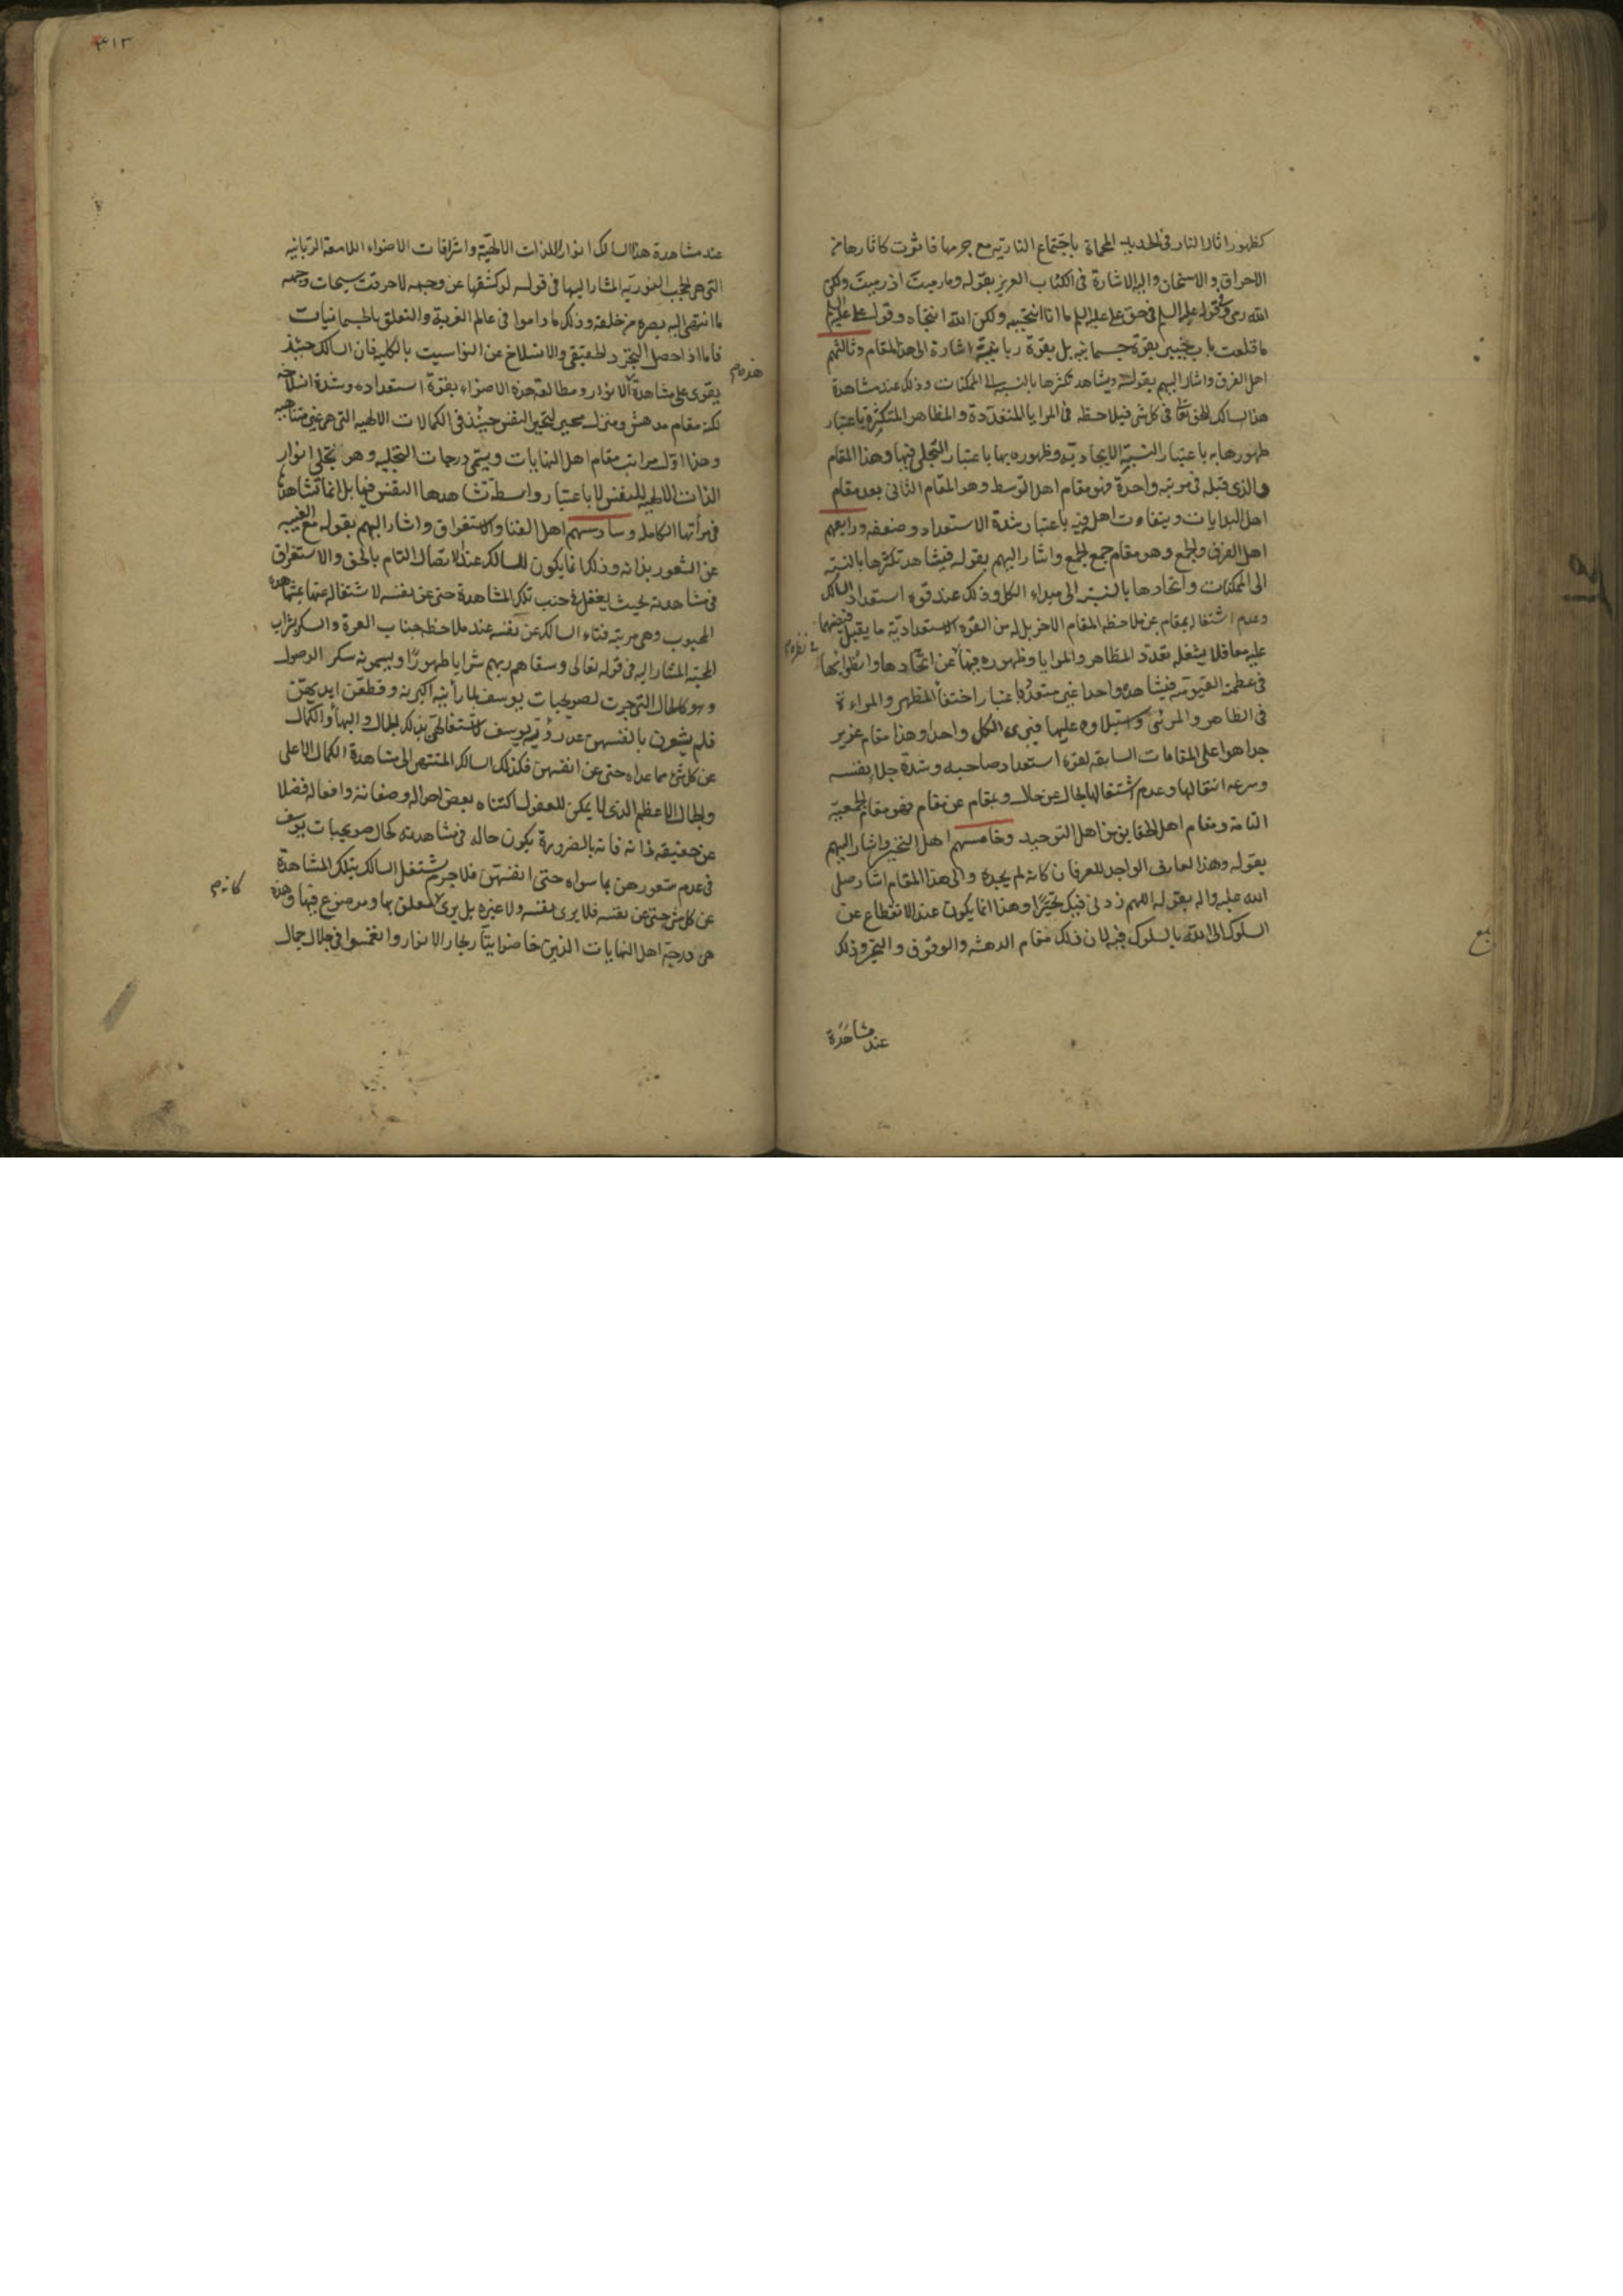 كظهور اثار النار فى الحديد المحماة باجتماع النارية مع جرمها فاثرت كاثارها من
الاحراق والاسخان واليه الاشارة فى الكتاب العزيز بقوله وما رميت اذ رميت ولكن
الله رمى وقوله عليه السلم فى حق على عليه السلم ما انا انتجيته ولكن الله انتجاه وقول على عليه السلم
ما قلعت باب خيبر بقوة جسمانية بل بقوة ربانية اشارة الى هذا المقام وثالثهم
اهل الفرق واشار اليهم بقوله ويشاهد تكثرها بالنسبة الى الممكنات وذلك عند مشاهدة
هذا السالك الحق تعالى فى كل شئ فيلاحظه فى المرايا المتعددة والمظاهر المتكثرة باعتبار
ظهورها به باعتبار النسبة الايجادية وظهوره بها باعتبار التجلى فيها وهذا المقام
والذى قبله فى مرتبة واحدة فهو مقام اهل التوسط وهو المقام الثانى بعد مقام
اهل البدايات ويتفاوت اهل فيه باعتبار شدة الاستعداد وضعفه ورابعهم
اهل الفرق والجمع وهو مقام جمع الجمع واشار اليهم بقوله فيشاهد تكثرها بالنسبة
الى الممكنات واتحادها بالنسبة الى مبداء الكل وذلك عند قوة استعداد السالك
وعدم اشتغاله بمقام عن ملاحظة المقام الاخر بل له من القوة الاستعدادية ما يقبل فيضهما
عليه معا فلا يشغله تعدد المظاهر والمرايا وظهوره فيها عن اتحادها وانطوائها
فى عظمة القيومية فيشاهده واحدا غير متعدد باعتبار اختفأ المظهر والمراءة
فى الظاهر والمرئى واستيلاوه عليها فيرى الكل واحدا وهذا مقام عزيز
جدا هو اعلى المقامات السابقة لقوة استعداد صاحبه وشدة جلا نفسه
وسرعة انتقالها وعدم اشتغالها بحال عن حال وبمقام عن مقام فهو مقام الجمعية
التامة ومقام اهل الحقايق من اهل التوحيد وخامسهم اهل التحير واشار اليهم
بقوله وهذا العارف الواجد للعرفان كانه لم يجده والى هذا المقام اشار صلى
الله عليه واله بقوله اللهم زدنى فيك تحيرا وهذا انما يكون عند الانقطاع عن
السلوك الى الله بالسلوك فيه لان ذلك مقام الدهشة والوقوف والتحير وذلك
عند مشاهدة
٣١٣
عند مشاهدة هذا السالك انوار الذات الالهية واشراقات الاضواء اللامعة الربانية
التى هى الحجب النورية المشار اليها فى قوله لو كشفها عن وجهه لاحرقت سبحات وجهه
ما انتهى اليه بصره من خلقه وذلك ما داموا فى عالم الغربة والتعلق بالجسمانيات
فاما اذا حصل التجرد الحقيقى والانسلاخ عن النواسيت بالكلية فان السالك حينئذ
يقوى على مشاهدة الانوار ومطالعة هذه الاضواء بقوة استعداده وشدة انسلاخه
لكنه مقام مدهش ومنزل محير لتحير النفس حينئذ فى الكمالات الالهية التى هى غير متناهية
وهذا اول مراتب مقام اهل النهايات ويسمى درجات التجلية وهو تجلى انوار
الذات الالهية للنفس لا باعتبار واسطة تشاهدها النفس فيها بل انما تشاهدها
فى مرأتها الكاملة وسادسهم اهل الفنا والاستغراق واشار اليهم بقوله مع الغيبة
عن الشعور بذاته وذلك انما يكون للسالك عند الاتصال التام بالحق والاستغراق
فى مشاهدته بحيث يغفل فى جنب تلك المشاهدة حتى عن نفسه لاشتغاله عنها بمشاهدة
المحبوب وهى مرتبة فناء السالك عن نفسه عند ملاحظة جناب العزة والسكر بشراب
المحبة المشار اليه فى قوله تعالى وسقاهم ربهم شرابا طهورا ويسمونه سكر الوصول
وهو كالحال التى جرت لصويحبات يوسف لما رأينه اكبرنه وقطعن ايديهن
فلم يشعرن بانفسهن عند رؤية يوسف لاشتغالهن بذلك الجمال والبهأ والكمال
عن كل شئ مما عداه حتى عن انفسهن فكذلك السالك المنتهى الى مشاهدة الكمال الاعلى
والجمال الاعظم الذى لا يمكن للعقول اكتناه بعض احواله وصفاته وافعاله فضلا
عن حقيقة ذاته فانه بالضرورة يكون حاله فى مشاهدته كحال صويحبات يوسف
فى عدم شعورهن بما سواه حتى انفسهن فلا جرم يشتغل السالك بتلك المشاهدة
عن كل شئ حتى عن نفسه فلا يرى نفسه ولا غيره بل يرى المتعلق بها ومد صنوع فيها وهذه
هى درجة اهل النهايات الذين خاضوا تيار بحار الانوار وانغمسوا فى جلال جمال